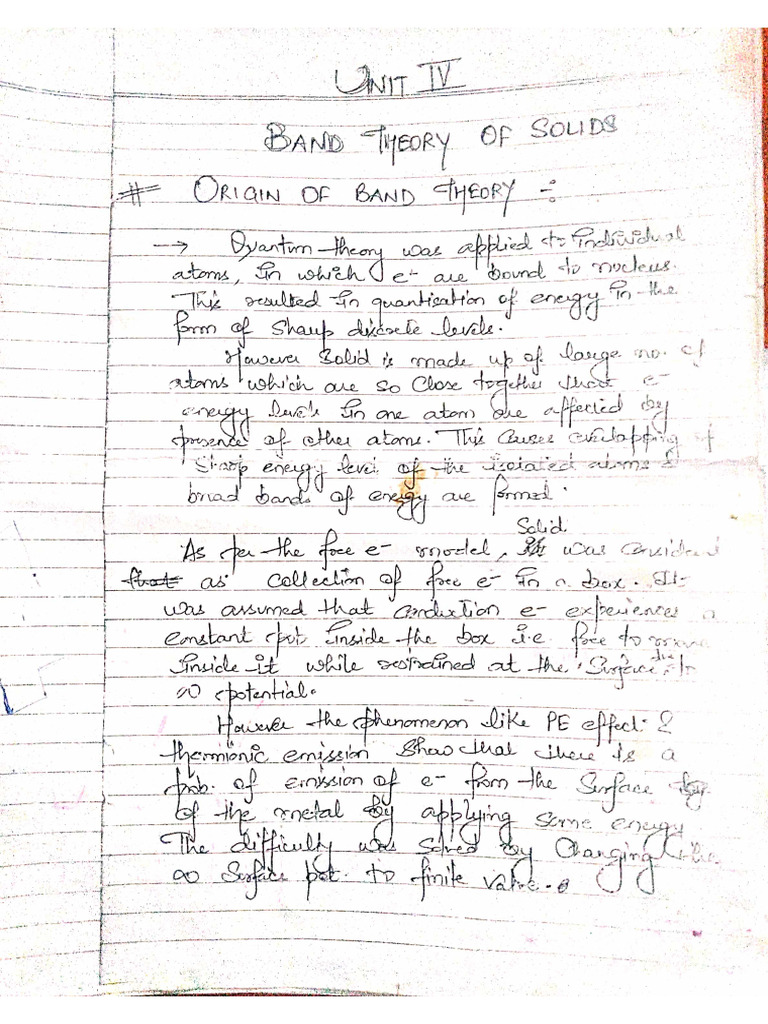 UNIT IV
BAND THEORY OF SOLIDS
# ORIGIN OF BAND THEORY -:
→ Quantum theory was applied to individual
atoms, in which e- are bound to nucleus.
This resulted in quantisation of energy in the
form of sharp discrete levels.
However solid is made up of large no. of
atoms which are so close together that e-
energy levels in one atom are affected by
presence of other atoms. This causes overlapping of
sharp energy level of the isolated atoms &
broad bands of energy are formed.
Solid
As per the free e- model, was considered
as collection of free e- in a box. It
was assumed that conduction e- experiences a
constant pot inside the box i.e. free to move
inside it while restrained at the surface, the
∞ potential.
However the phenomenon like PE effect &
thermionic emission show that there is a
prob. of emission of e- from the surface
of the metal by applying some energy
The difficulty was solved by changing the
∞ surface pot. to finite value.